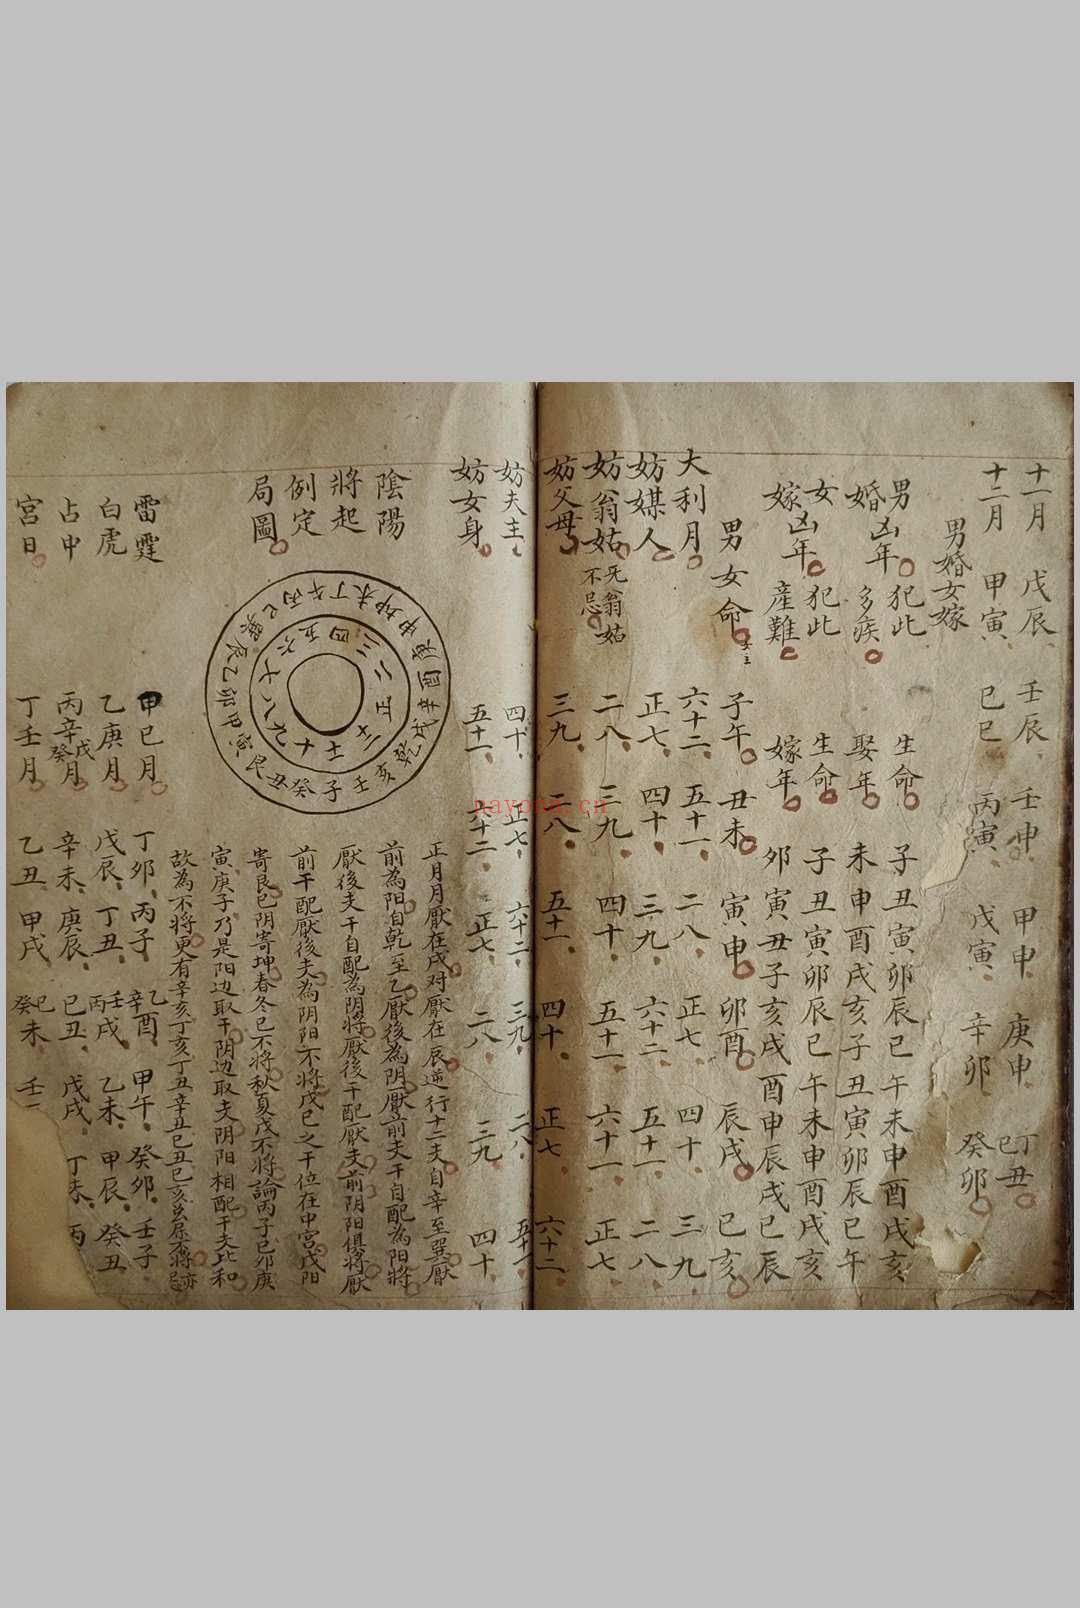 十一月 戊辰 壬辰 壬申 甲申 庚申 丁丑 己
十二月 甲寅 己巳 丙寅 戊寅 辛卯 癸卯
男婚女嫁
男婚凶年 犯此多疾 生命 子丑寅卯辰巳午未申酉戌亥
娶年 未申酉戌亥子丑寅卯辰巳午
女嫁凶年 犯此產難 生命 子丑寅卯辰巳午未申酉戌亥
嫁年 卯寅丑子亥戌酉申辰戌巳辰
男女命 女主 子午 丑未 寅申 卯酉 辰戌 巳亥
大利月 六十二 五十一 二八 正七 四十 三九
妨媒人 正七 四十 三九 六十二 五十一 二八
妨翁姑 无翁姑不忌 二八 三九 四十 五十一 六十一 正七
妨父母 三九 二八 五十一 四十 正七 六十二
妨夫主 四十 正七 六十二 三九 二八 五十一
妨女身 五十一 六十二 正七 二八 三九 四十
陰陽將起例定局圖
正二三四五六七八九十十一十二
壬子癸丑艮寅甲卯乙辰巽巳丙午丁未坤申庚酉辛戌乾亥
正月月厭在戌对厭在辰逆行十二支自辛至巽厭
前為阳自乾至乙厭後為阴厭前支干自配為阳將
厭後支干自配為阴將厭後干配厭支前阴阳俱將厭
前干配厭後支為阴阳不將戊己之干位在中宮戊阳
寄艮己阴寄坤春冬己不將秋夏戊不將論丙子己卯庚
寅庚子乃是阳边取干阴边取支阴阳相配干支比和
故為不將更有辛亥丁亥丁丑辛丑己丑己亥
雷霆 甲己月 丁卯 丙子 乙辛酉 甲午 癸卯 壬子
白虎 乙庚月 戊辰 丁丑 壬丙戌 乙未 甲辰 癸丑
占中 丙辛戊癸月 辛未 庚辰 己丑 戊戌 丁未 丙
宮日 丁壬月 乙丑 甲戌 己癸未 壬
nayona.cn